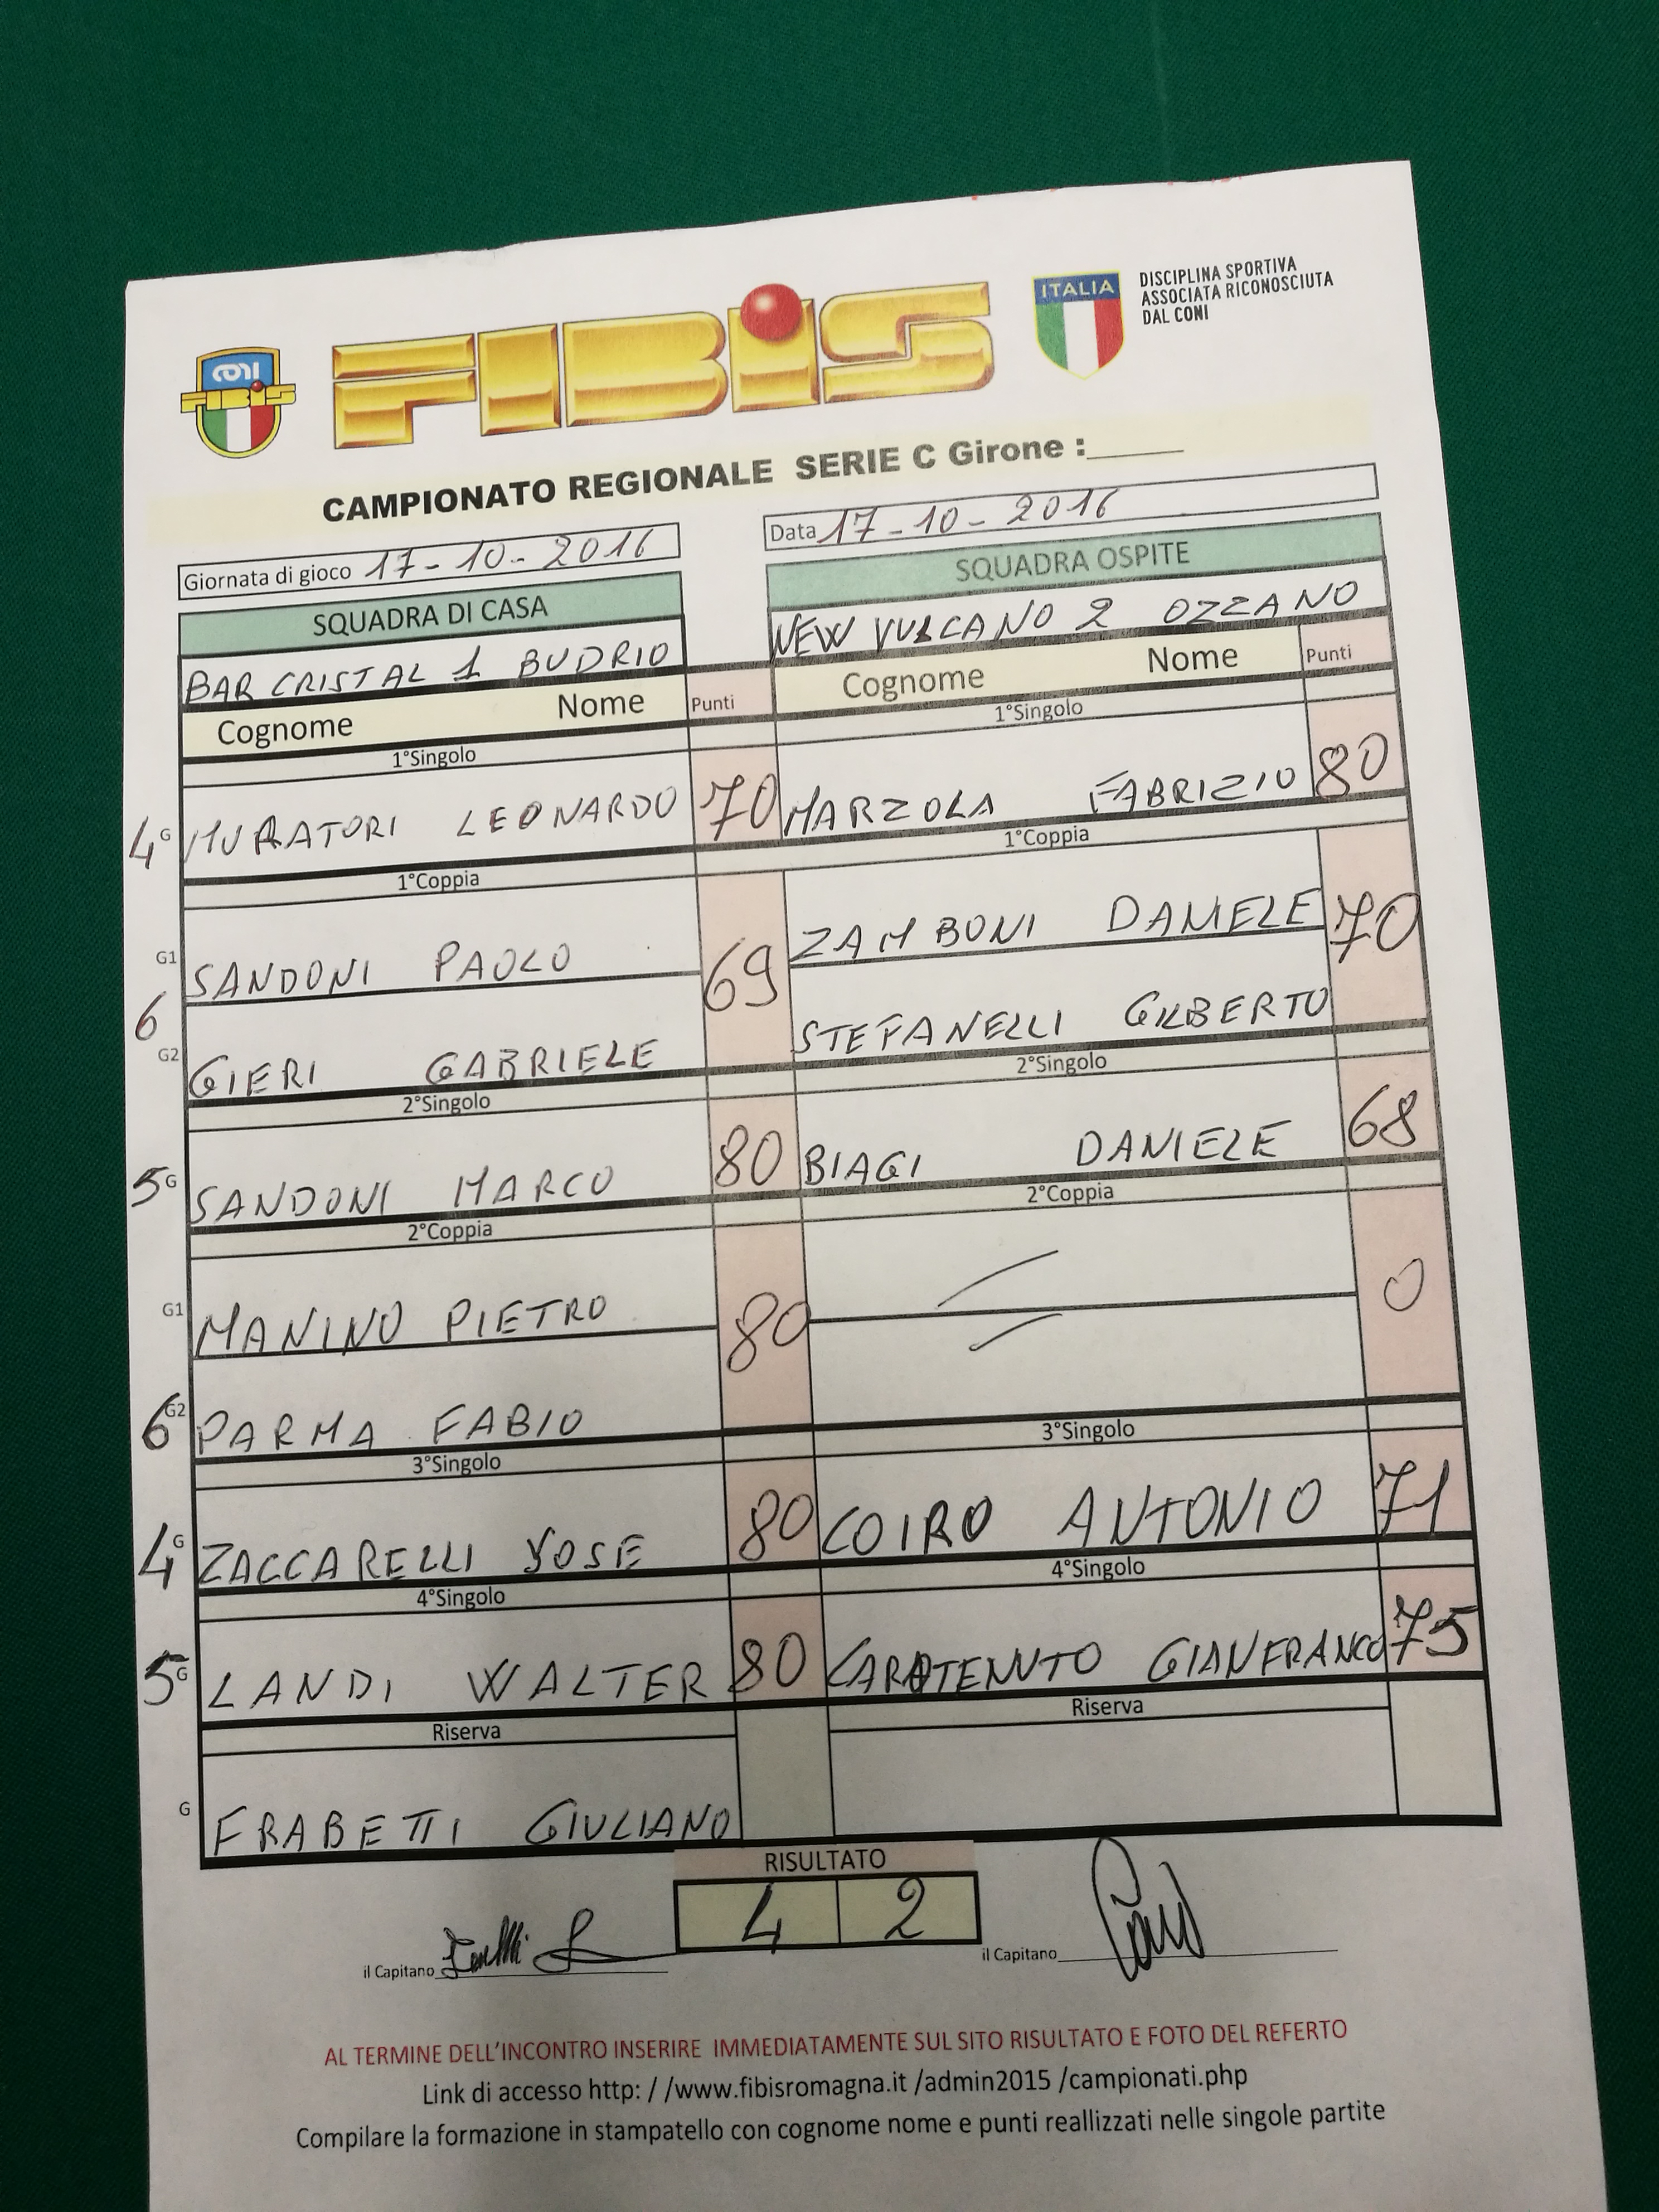 FIBIS
CONI
FIBIS
ITALIA
DISCIPLINA SPORTIVA
ASSOCIATA RICONOSCIUTA
DAL CONI
CAMPIONATO REGIONALE SERIE C Girone :______
Giornata di gioco 17-10-2016
Data 17-10-2016
SQUADRA DI CASA
SQUADRA OSPITE
BAR CRISTAL 1 BUDRIO
NEW VULCANO 2 OZZANO
Cognome Nome Punti
Cognome Nome Punti
1°Singolo
1°Singolo
4 G MURATORI LEONARDO 70
MARZOLA FABRIZIO 80
1°Coppia
1°Coppia
G1 SANDONI PAOLO 69
ZAMBONI DANIELE 70
6
G2 GIERI GABRIELE
STEFANELLI GILBERTO
2°Singolo
2°Singolo
5 G SANDONI MARCO 80
BIAGI DANIELE 68
2°Coppia
2°Coppia
G1 MANINO PIETRO 80
0
6 G2 PARMA FABIO
3°Singolo
3°Singolo
4 G ZACCARELLI YOSE 80
COIRO ANTONIO 71
4°Singolo
4°Singolo
5 G LANDI WALTER 80
CAROTENUTO GIANFRANCO 75
Riserva
Riserva
G FRABETTI GIULIANO
RISULTATO
4 2
il Capitano
il Capitano
AL TERMINE DELL'INCONTRO INSERIRE IMMEDIATAMENTE SUL SITO RISULTATO E FOTO DEL REFERTO
Link di accesso http: / /www.fibisromagna.it /admin2015 /campionati.php
Compilare la formazione in stampatello con cognome nome e punti reallizzati nelle singole partite